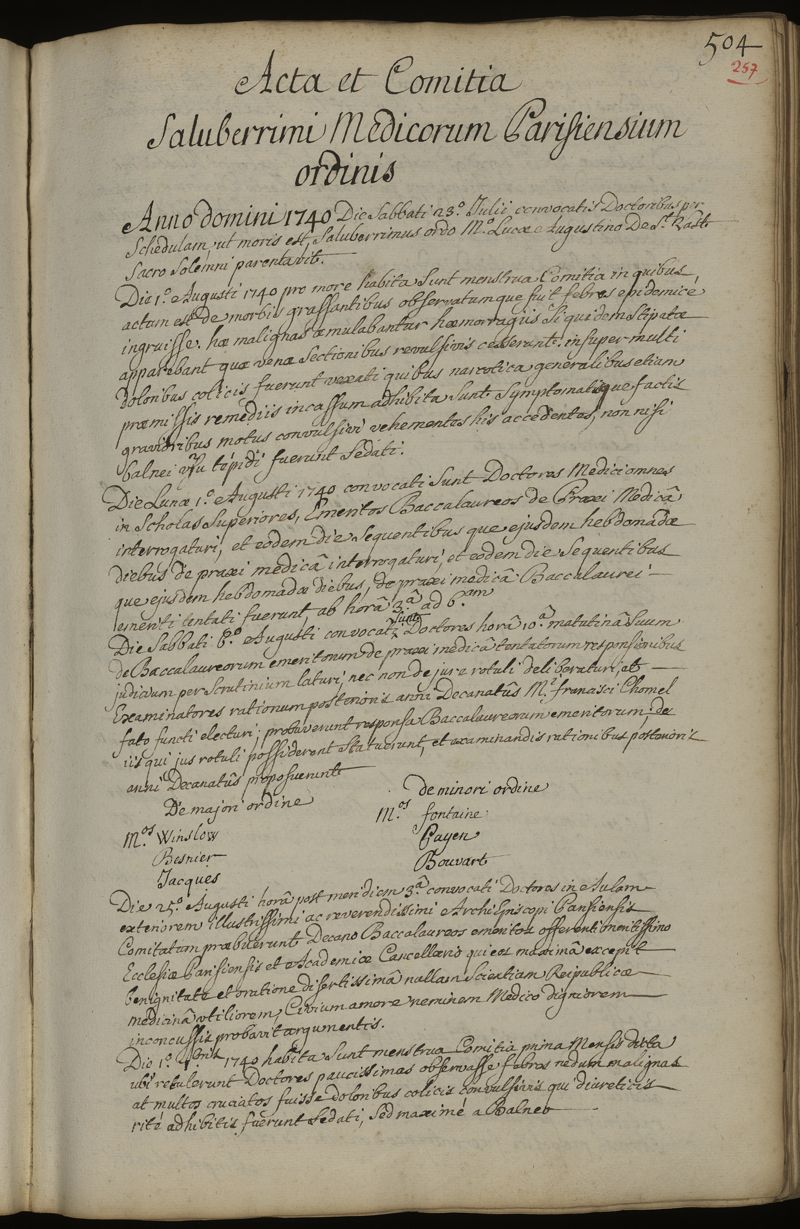 504
257
Acta et Comitia
Saluberrimi Medicorum Parisiensium
ordinis
Anno domini 1740 Die Sabbati 23.º Julii convocatis Doctoribus per
Schedulam, ut moris est, Saluberrimus ordo M.º Lucæ Augustino De S.t
Sacro Solemni parentavit.
Die 1.º Augusti 1740 pro more habita Sunt menstrua Comitia in quibus
actum est De morbis grassantibus observatumque fuit febres epidemicè
ingruisse. hæ malignas æmulabantur hæmorragiis Siquidem Stipatæ
apparebant quæ venæ Sectionibus revulsivis cesserunt. insuper multi
doloribus colicis fuerunt vexati quibus narcotica generalibus etiam
præmissis remediis incassum adhibita Sunt Symptomatisque factis
gravioribus motus convulsivi vehementes his accedentes, non nisi
balnei usu tipidi fuerunt Sedati.
Die Lunæ 1.º Augusti 1740 convocati Sunt Doctores Medici omnes
in Scholas Superiores, Emeritos Baccalaureos de Praxi Medicâ
interrogaturi, et eodem die Sequentibus que ejusdem hebdomadæ
Diebus de praxi medicâ interrogaturi, et eodem die Sequentibus
que ejusdem hebdomadæ diebus, de praxi medicâ Baccalaurei
emeriti tentati fuerunt, ab horâ 3.â ad 6.am
Die Sabbati 6.º Augusti convocati Sunt Doctores horâ 10.â matutinâ Suum
de Baccalaureorum emeritorum de praxi medicâ tentatorum responsionibus
judicium per Scrutinium laturi, nec non de jure rotuli deliberaturi, et
Examinatores rationum posterioris anni Decanatûs M.i francisci Chomel
fato functi electuri; probaverunt responsa Baccalaureorum emeritorum, de
iis qui jus rotuli possiderent Statuerunt, et examinandis rationibus posterioris
anni Decanatûs proposuerunt
De majori ordine
de minori ordine
M.os Winslow
M.os fontaine
Besnier
Payen
Jacques
Bouvart
Die 25.º Augusti horâ post meridiem 3.â convocati Doctores in Aulam
exteriorem illustrissimi ac reverendissimi Archiepiscopi Parisiensis
Comitatum præbuerunt Decano Baccalaureos emeritos offerenti meritissimo
Ecclesiæ Parisiensis et Academiæ Cancellario qui eos maximâ excepit
benignitate et oratione disertissimâ nullam Scientiam Reipublicæ
medicinâ utiliorem, Civium amore neminem Medico digniorem
inconcussis probavit argumentis.
Die 1.º 7.bris 1740 habita Sunt menstrua Comitia prima Mensis dicta
ubi retulerunt Doctores paucissimas observasse febres nedum malignas
at multos cruciatos fuisse doloribus colicis convulsivis qui diureticis
ritè adhibitis fuerunt Sedati, Sed maximè a Balneo